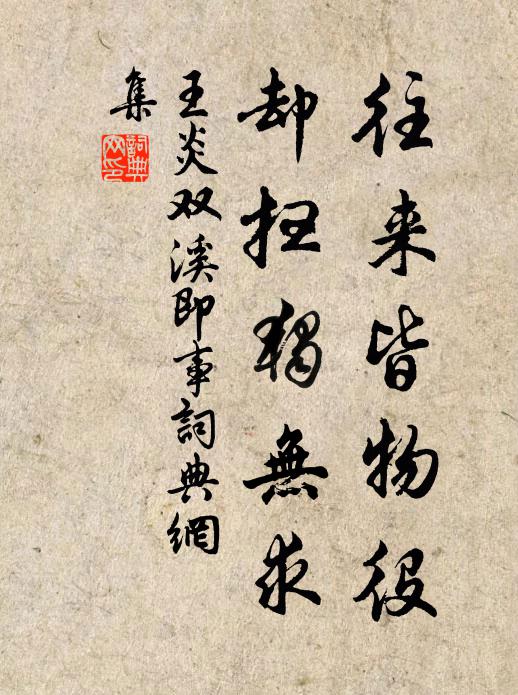 往来皆物役
却扫独無求
王炎双溪即事詞典網
集
詞典
网印